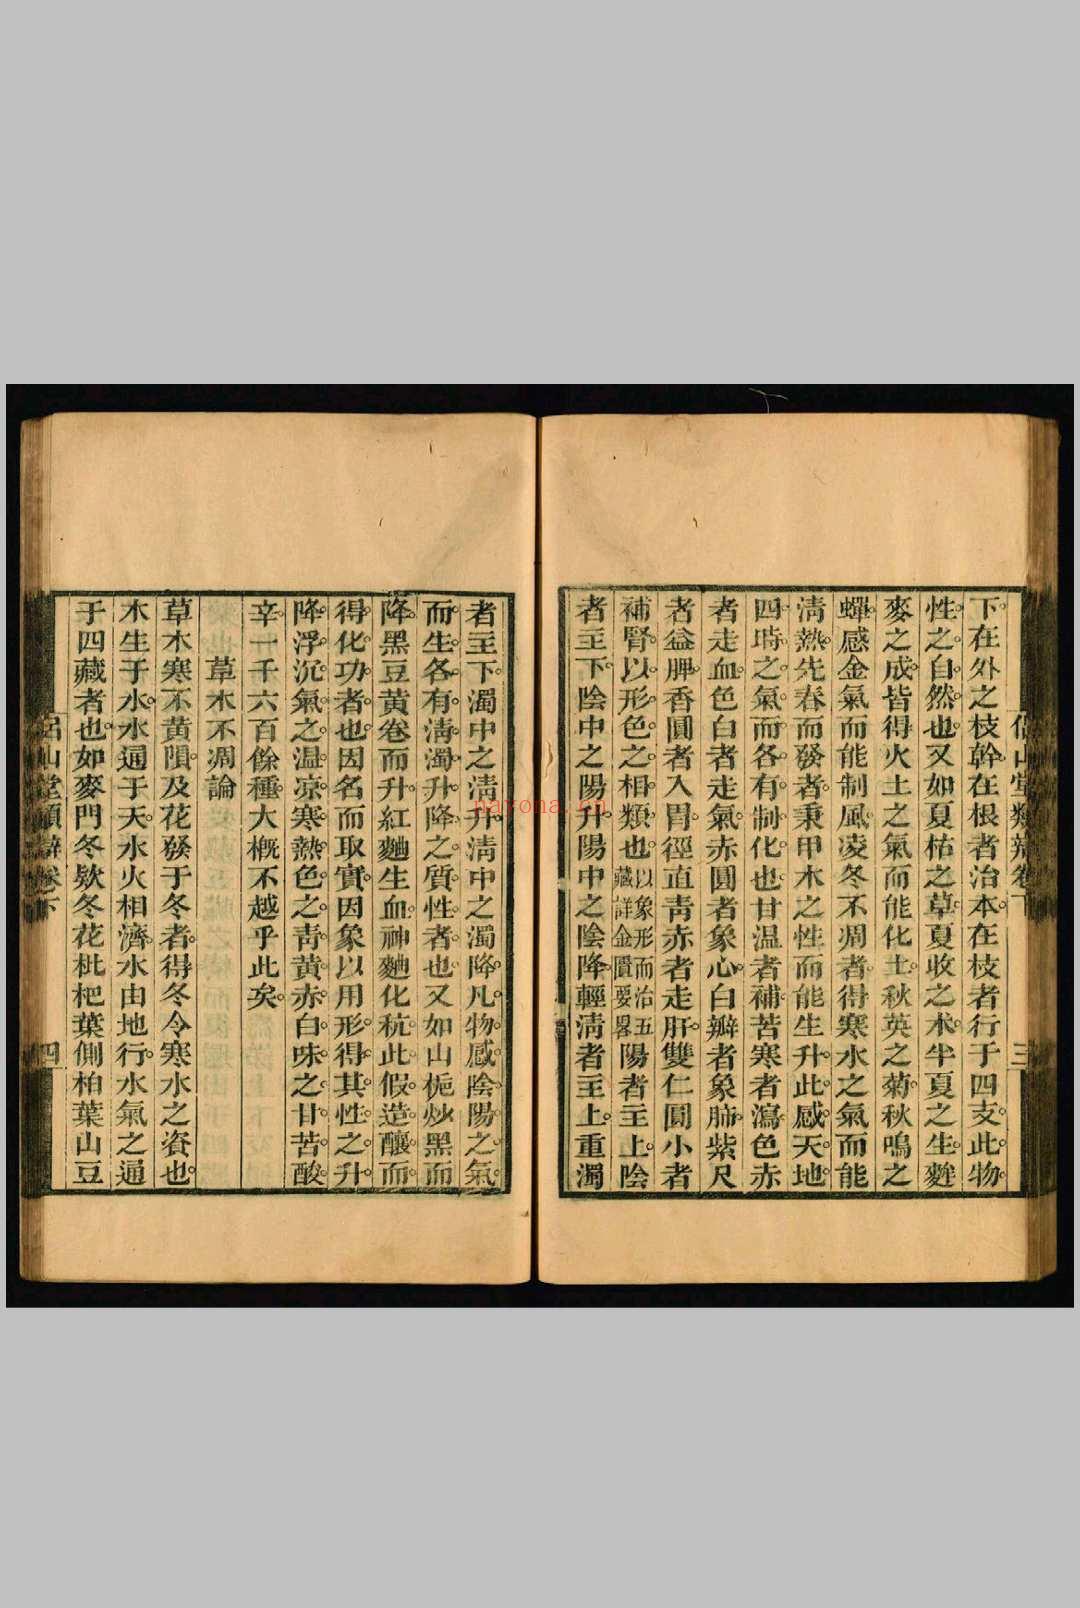 侶山堂類辯卷下 三
下在外之枝幹在根者治本在枝者行于四支此物
性之自然也又如夏枯之草夏收之术半夏之生𪍿
麥之成皆得火土之氣而能化土秋英之菊秋鳴之
蟬感金氣而能制風凌冬不凋者得寒水之氣而能
淸熱先春而發者秉甲木之性而能生升此感天地
四時之氣而各有制化也甘温者補苦寒者瀉色赤
者走血色白者走氣赤圓者象心白瓣者象肺紫尺
者益脾香圓者入胃徑直靑赤者走肝雙仁圓小者
補腎以形色之相類也以象形而治五藏詳金匱要畧陽者至上陰
者至下陰中之陽升陽中之陰降輕淸者至上重濁
者至下濁中之淸升淸中之濁降凡物感陰陽之氣
而生各有淸濁升降之質性者也又如山梔炒黑而
降黑豆黃卷而升紅麯生血神麯化秔此假造釀而
得化功者也因名而取實因象以用形得其性之升
降浮沉氣之温凉寒熱色之靑黃赤白味之甘苦酸
辛一千六百餘種大概不越乎此矣
草木不凋論
草木寒不黃隕及花發于冬者得冬令寒水之資也
木生于水水通于天水火相濟水由地行水氣之通
于四藏者也如麥門冬欵冬花枇杷葉側柏葉山豆
侶山堂類辯卷下 四
nayona.cn